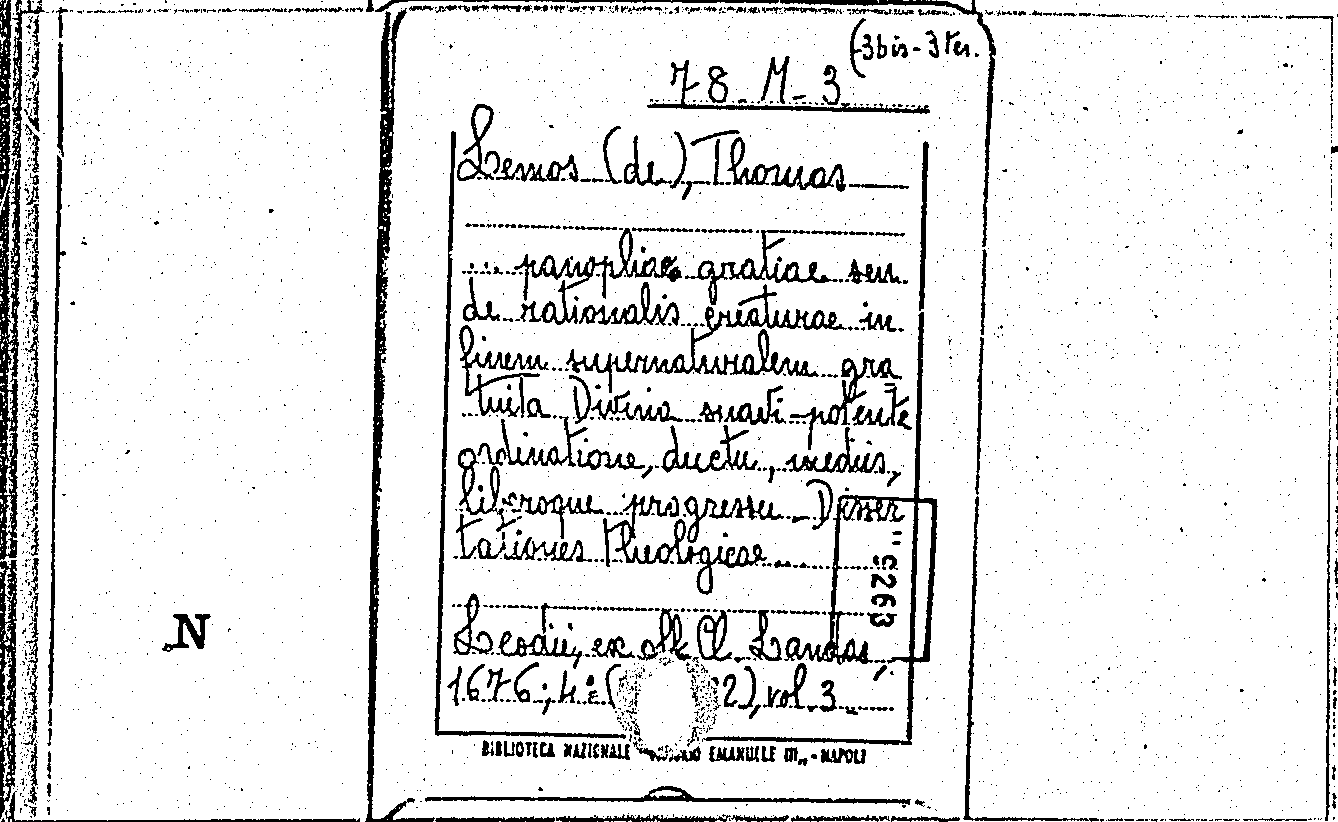 (3bis-3ter.
78-M-3
Lemos (de), Thomas
... panopliae gratiae seu
de rationalis creaturae in
finem supernaturalem gra
tuita Divina suavi-potente
ordinatione, ductu, mediis,
liberoque progressu. Disser
tationes theologicae...
"S263
Leodii, ex off. Cl. Landas,
1676; 4°( 2), vol. 3
BIBLIOTECA NAZIONALE EMANUELE III„ - NAPOLI
N